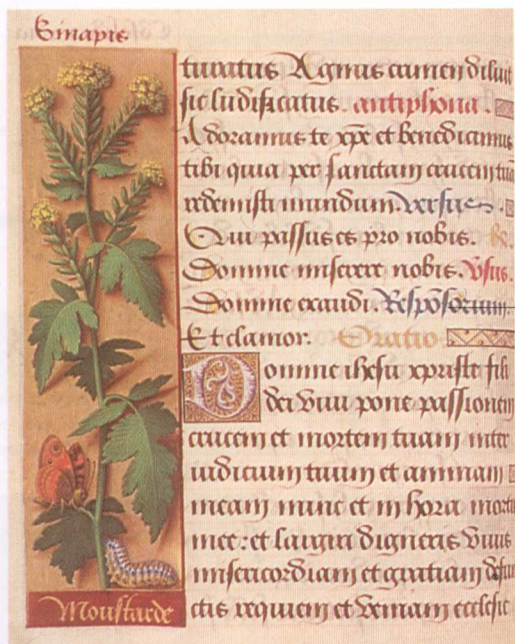 Sinapis
turatus Agnus crimen diluit
sic ludificatus. antiphona.
Adoramus te xpe et benedicimus
tibi quia per sanctam crucem tuā
redemisti mundum. Versus.
Qui passus es pro nobis. R.
Domine miserere nobis. Vsus.
Domine exaudi. Respōsorium.
Et clamor. Oratio
Domine ihesu xpriste fili
dei viui pone passionem
crucem et mortem tuam inter
iudicium tuum et animam
meam nunc et in hora mortis
mee: et largiri digneris viuis
misericordiam et gratiam defun
ctis requiem et veniam ecclesie
Moustarde